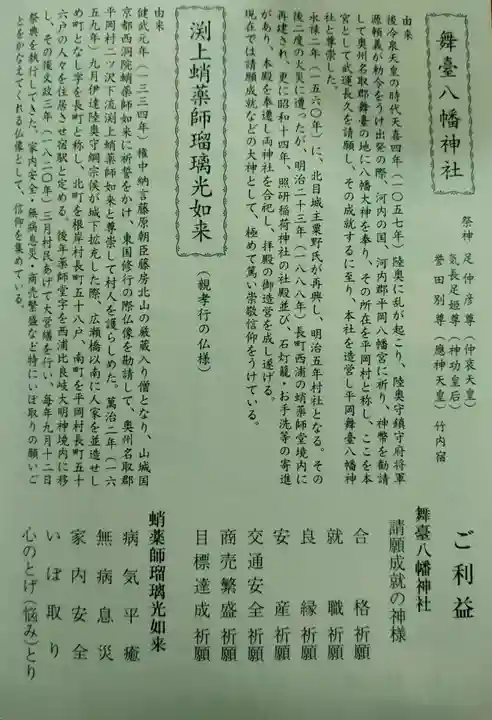 舞臺八幡神社
祭神 足仲彦尊(仲哀天皇)
気長足姫尊(神功皇后)
誉田別尊(應神天皇)竹内宿
由来
後冷泉天皇の時代天喜四年(一〇五七年)陸奥に乱が起こり、陸奥守鎮守府将軍
源頼義が勅令をうけ出発の際、河内の国、河内郡平岡八幡宮に祈り、神幣を勧請
して奥州名取郡舞臺の地に八幡大神を奉り、その所在を平岡村と称し、ここを本
宮として武運長久を請願し、その成就するに至り、本社を造営し平岡舞臺八幡神
社と尊崇した。
永禄二年(一五六〇年)に、北目城主粟野氏が再興し、明治五年村社となる。その
後二度の火災に遭ったが、明治二十三年(一八八八年)長町西浦の蛸薬師堂境内に
再建され、更に昭和十四年、照研稲荷神社の社殿並び、石灯籠・お手洗等の寄進
があり、本殿を奉遷し両神社を合祀し、拝殿の御造営を成し遂げる。
現在では請願成就などの大神として、極めて篤い崇敬信仰をうけている。
渕上蛸薬師瑠璃光如来
(親孝行の仏様)
由来
健武元年(一三三四年)権中納言藤原朝臣藤房北山の厳蔵入り僧となり、山城国
京都西洞院蛸薬師如来に祈誓をかけ、東国修行の際仏像を勧請して、奥州名取郡
平岡村二ツ沢下流渕上蛸薬師如来と尊崇して村人を護らしめた。萬治二年(一六
五九年)九月伊達陸奥守綱宗侯が城下拡充した際、広瀬橋以南に人家を並造せし
め町となし字を長町と称し、北町を根岸村長町五十八戸、南町を平岡村長町五十
六戸の人々を住居させ宿駅と定める。後年薬師堂字を西浦比良岐大明神境内に移
し、その後文政三年(一八二〇年)三月村民あげて大営繕を行い、毎年九月十二日
祭典を執行してきた。家内安全・無病息災・商売繁盛など特にいぼ取りの願いご
とをかなえてくれる仏像として、信仰を集めている。
ご利益
舞臺八幡神社
請願成就の神様
合格祈願
就職祈願
良縁祈願
安産祈願
交通安全祈願
商売繁盛祈願
目標達成祈願
蛸薬師瑠璃光如来
病気平癒
無病息災
家内安全
いぼ取り
心のとげ(悩み)とり